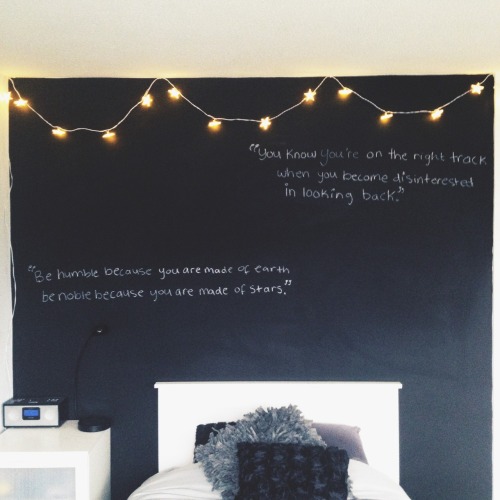 "You know you're on the right track
when you become disinterested
in looking back."
"Be humble because you are made of earth
be noble because you are made of stars."